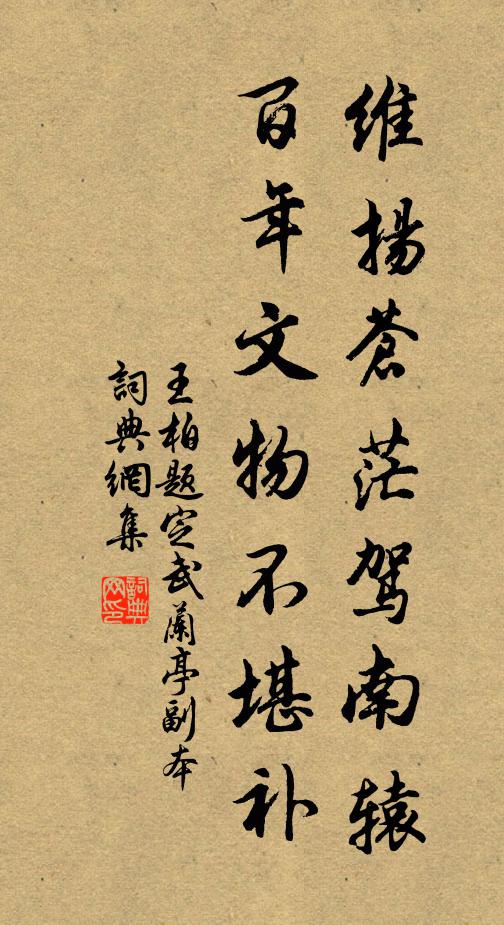 维揚蒼茫駕南辕
百年文物不堪补
王柏题定武蘭亭副本
詞典網集
詞典網印